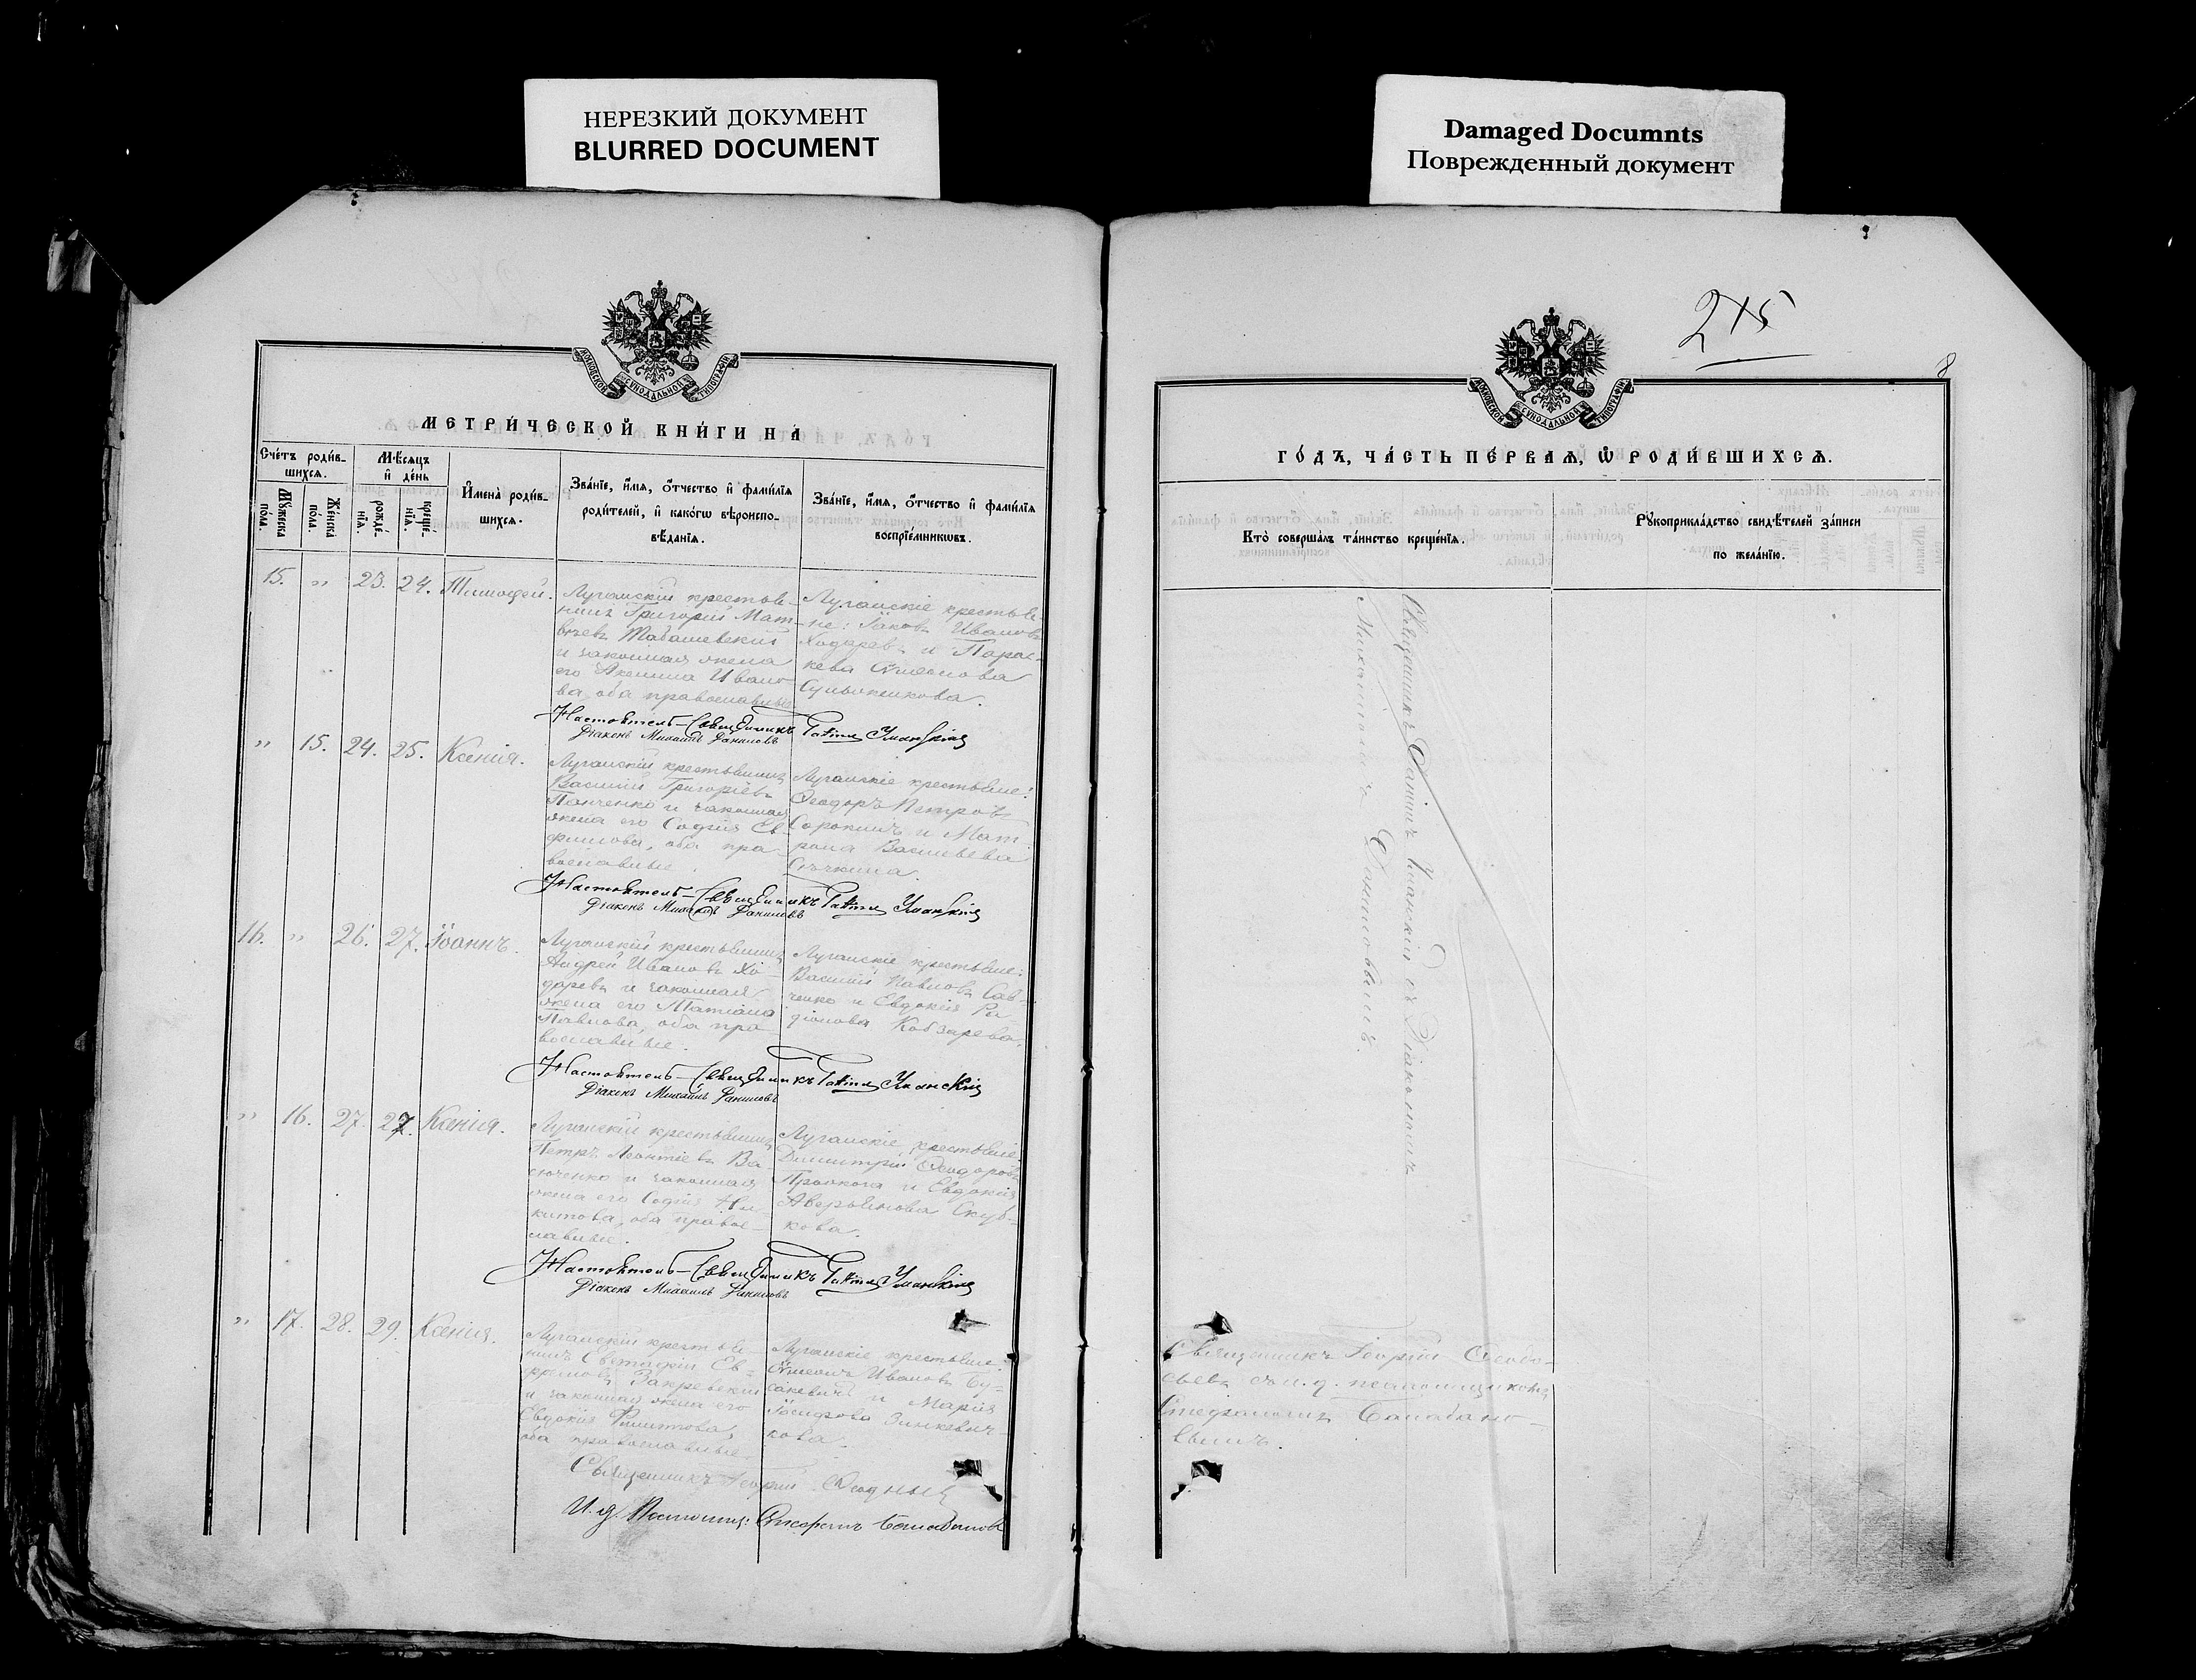 НЕРЕЗКИЙ ДОКУМЕНТ
BLURRED DOCUMENT
Damaged Documnts
Поврежденный документ
МОСКОВСКОЙ СѴНОДАЛЬНОЙ ТИПОГРАФІИ
МЕТРИ́ЧЕСКОЙ КНИ́ГИ НА́
Сче́тъ роди́в-
шихся.
Мꙋ́жеска по́ла.
Же́нска по́ла.
Мѣ́сяцъ
и҆ де́нь
рожде́-нїѧ.
креще́-нїѧ.
И҆мена̀ роди́в-
шихся.
Зва́нїе, и҆́мѧ, ѻ҆́тчество и҆ фами́лїѧ
роди́телей, и҆ како́гѡ вѣроиспо-
вѣ́данїѧ.
Зва́нїе, и҆́мѧ, ѻ҆́тчество и҆ фами́лїѧ
воспрїе́мникѡвъ.
15. " 23. 24. Тимофей.
Луганскій крестья-
нинъ Григорій Мат-
вѣевъ Табашевскій
и законная жена
его Аксинія Ивано-
ва, оба православные
Луганскіе крестья-
не: Іаковъ Ивановъ
Ходаревъ и Парас-
кева Сѵмеонова
Настоятель-Священникъ Уманскій
Діаконъ Михаилъ Даниловъ
" 15. 24. 25. Ксенія.
Луганскій крестьянинъ
Василій Григоріевъ
Панченко и законная
жена его Софія Ев-
фимова, оба пра-
вославные.
Луганскіе крестьяне:
Ѳеодоръ Петровъ
Сорокинъ и Мат-
рона Васильева
Настоятель-Священникъ Уманскій
Діаконъ Михаилъ Даниловъ
16. " 26. 27. Іоаннъ.
Луганскій крестьянинъ
Андрей Ивановъ Хо-
даревъ и законная
жена его Татіана
Павлова, оба пра-
вославные.
Луганскіе крестьяне:
Василій Павловъ Сав-
ченко и Евдокія Ра-
діонова Кобзарева.
Настоятель-Священникъ Уманскій
Діаконъ Михаилъ Даниловъ
" 16. 27. 27. Ксенія.
Луганскій крестьянинъ
Петръ Леонтіевъ Ва-
сюченко и законная
жена его Софія Ни-
китова, оба правос-
лавные.
Луганскіе крестьяне:
Димитрій Ѳеодоровъ
и Евдокія
Аверьянова
кова.
Настоятель-Священникъ Уманскій
Діаконъ Михаилъ Даниловъ
" 17. 28. 29. Ксенія.
Луганскій крестья-
нинъ Евстафій Ев-
Закревскій
и законная жена его
Евдокія
оба православные
Луганскіе крестьяне:
Сѵмеонъ Ивановъ Бу-
и Марія
Іосифова Зинкевич-
кова.
Священникъ Георгій
И. д. Псаломщ: Стефанъ Балабановъ
215
8
ГО́ДЪ, ЧА́СТЬ ПЕ́РВАѦ, Ѽ РОДИ́ВШИХСѦ.
Кто̀ соверша́лъ та́инство креще́нїѧ.
Рꙋкоприкла́дство свидѣ́телей за́писи
по жела́нїю.
Священникъ Уманскій съ Діакономъ
Михаиломъ Даниловымъ.
Священникъ Георгій Ѳеодо-
съ и. д. псаломщикомъ
Стефаномъ Балабано-
вымъ.